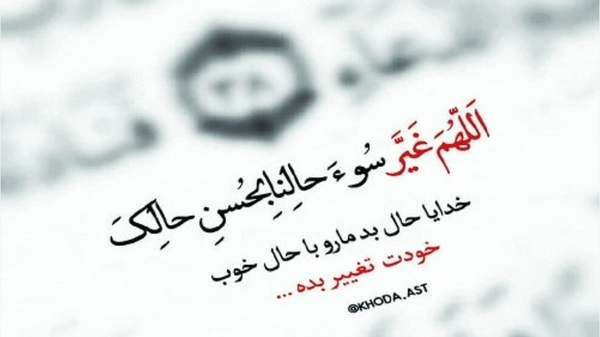 اَللّهُمَ غَیِّرَ سُوءَ حالِنِا بِحُسنِ حالِکَ
خدایا حال بد مارو با حال خوب
خودت تغییر بده ...
@KHODA_AST